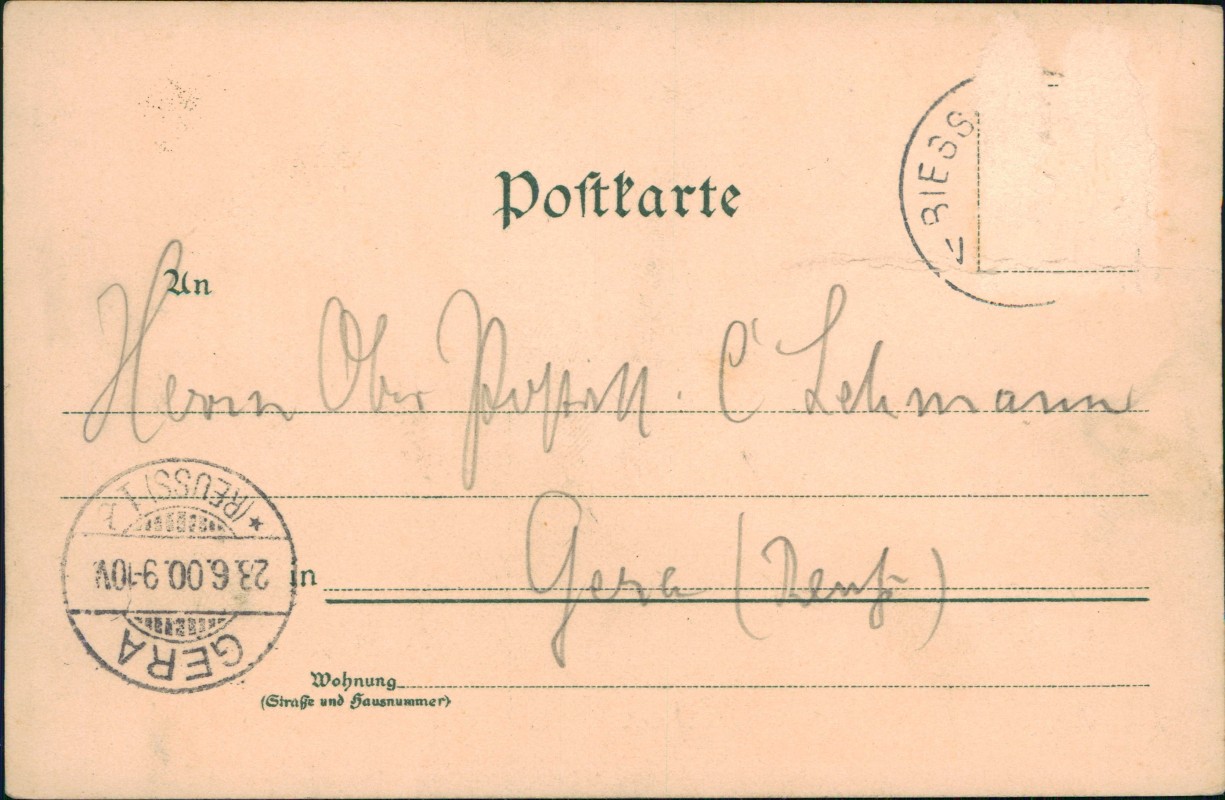 Postkarte
BIESS
An
Herrn Ober Postass. C Lehmann
Gera (Reuß)
in
Wohnung
(Straße und Hausnummer)
GERA
23.6.00.9-10V.
(REUSS) 1.